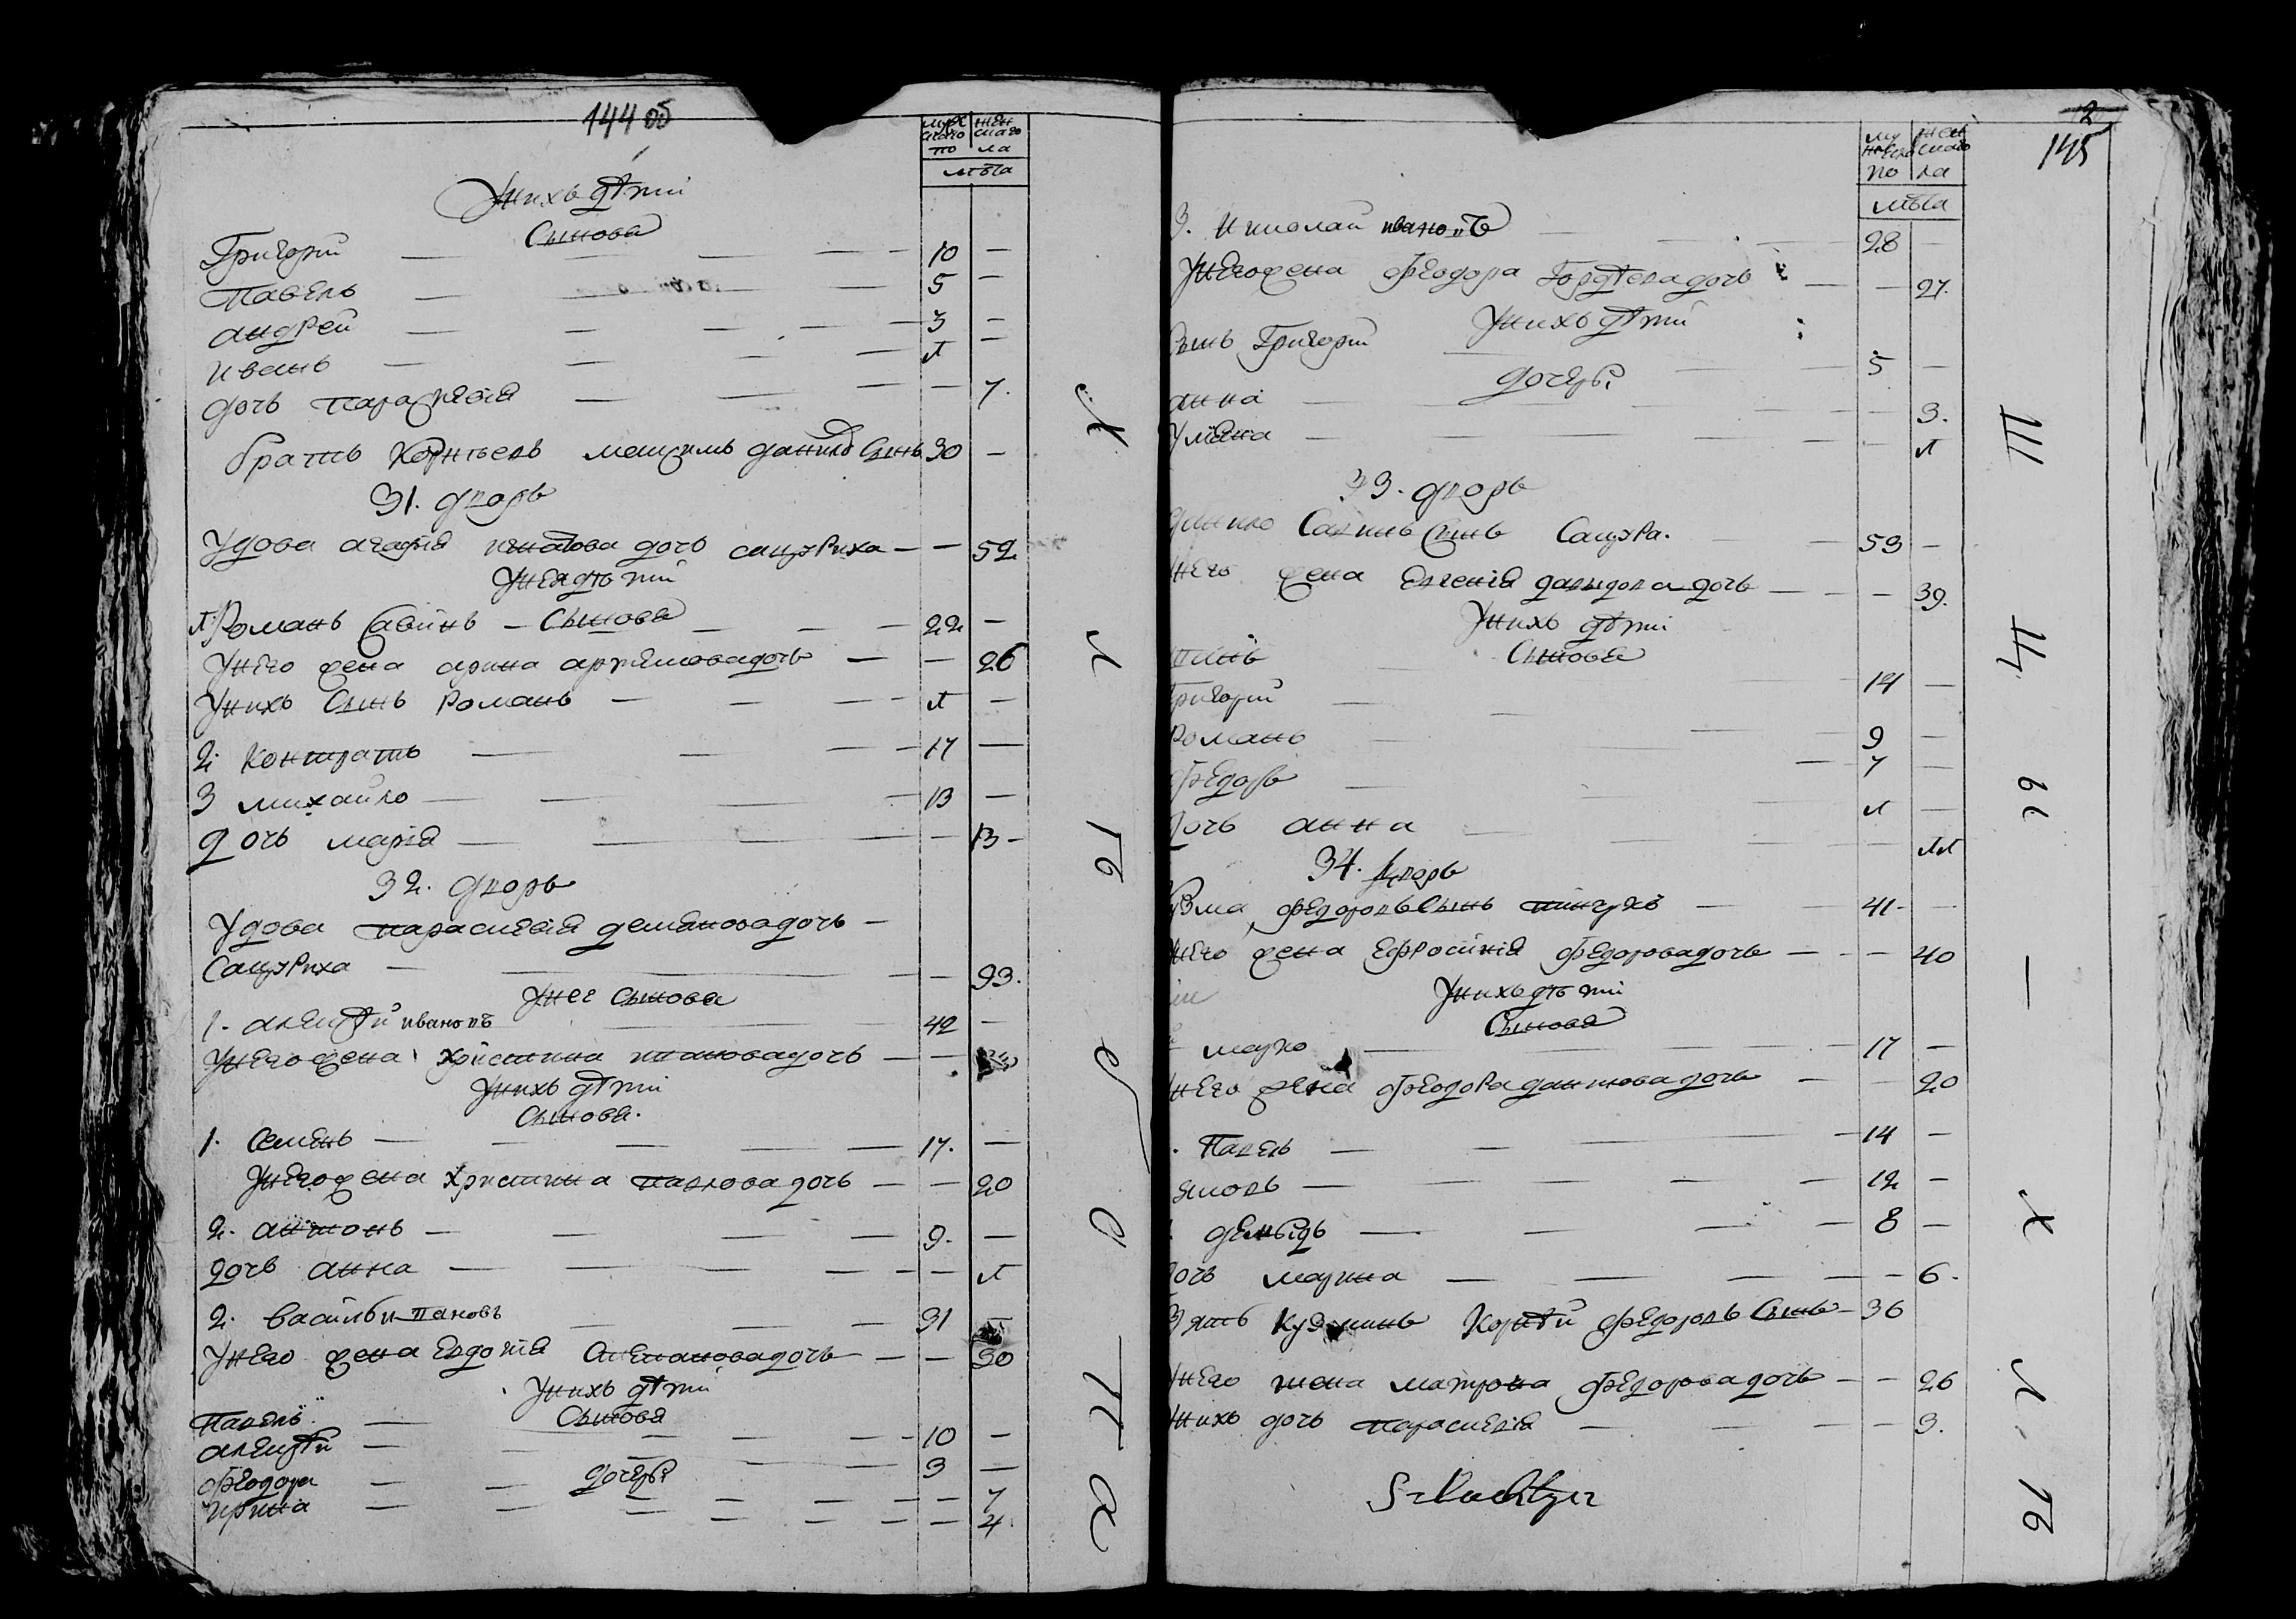 144 об
мужеска по
женска ла
лѣта
У нихъ дѣти
Сынова
Григорій — 10 —
Павелъ — 5 —
андрей — 3 —
иванъ — 1 —
дочь параскевія — — 7.
братъ Корнѣевъ максимъ данило Сынъ 30 —
31. дворъ
Удова агафія игнатова дочь сацуриха — — 52
У нея дѣти
1. Романъ Савинъ — Сынова — 22 —
У него жена арина артемовадочь — — 26
У нихъ Сынъ Романъ — 1 —
2. Контратъ — 17 —
3 михайло — 13 —
дочь марія — — 13 —
32. дворъ
Удова параскевія демяновадочь —
Сацуриха — — 93.
У нее сынова
1. алексѣй ивановъ 42 —
У него жена христина ивановадочь — —
У нихъ дѣти
Сынова.
1. Семенъ — 17. —
У него жена христина павловадочь — — 20
2. антонъ — 9. —
дочь анна — — 1
2. василь ивановъ 31
У него жена Евдокія Степановадочь — — 30
У нихъ дѣти
Сынова
Павелъ — 10 —
алексѣй — 3 —
дочери
феодора — — 7
ирина — — 4.
2
145
мужеска по
женска ла
лѣта
3. Николай ивановъ — 28 —
У него жена феодора Гордѣева дочь — — 27.
У нихъ дѣти
Сынъ Григорій — 5 —
дочери
анна — — 3.
Уляна — — 1
33. дворъ
данило Савинъ Сынъ Сацура. — 53 —
У него жена Евгенія давыдова дочь — — 39.
У нихъ дѣти
Сынова
14 —
Григорій
Романъ — 9 —
7 —
федоръ — 1 —
дочь анна — — 11
34. дворъ
Кузма федоровъ Сынъ пинчукъ — 41 —
У него жена Ефросинія федоровадочь — — 40
У нихъ дѣти
Сынова
марко — 17 —
У него жена феодора даниловадочь — — 20
Павелъ — 14 —
яковъ — 12 —
демидъ — 8 —
дочь марина — — 6.
Зять Кузминъ Корнѣй федоровъ Сынъ — 36
У него жена матрона федоровадочь — — 26
У нихъ дочь параскевія — — 3.